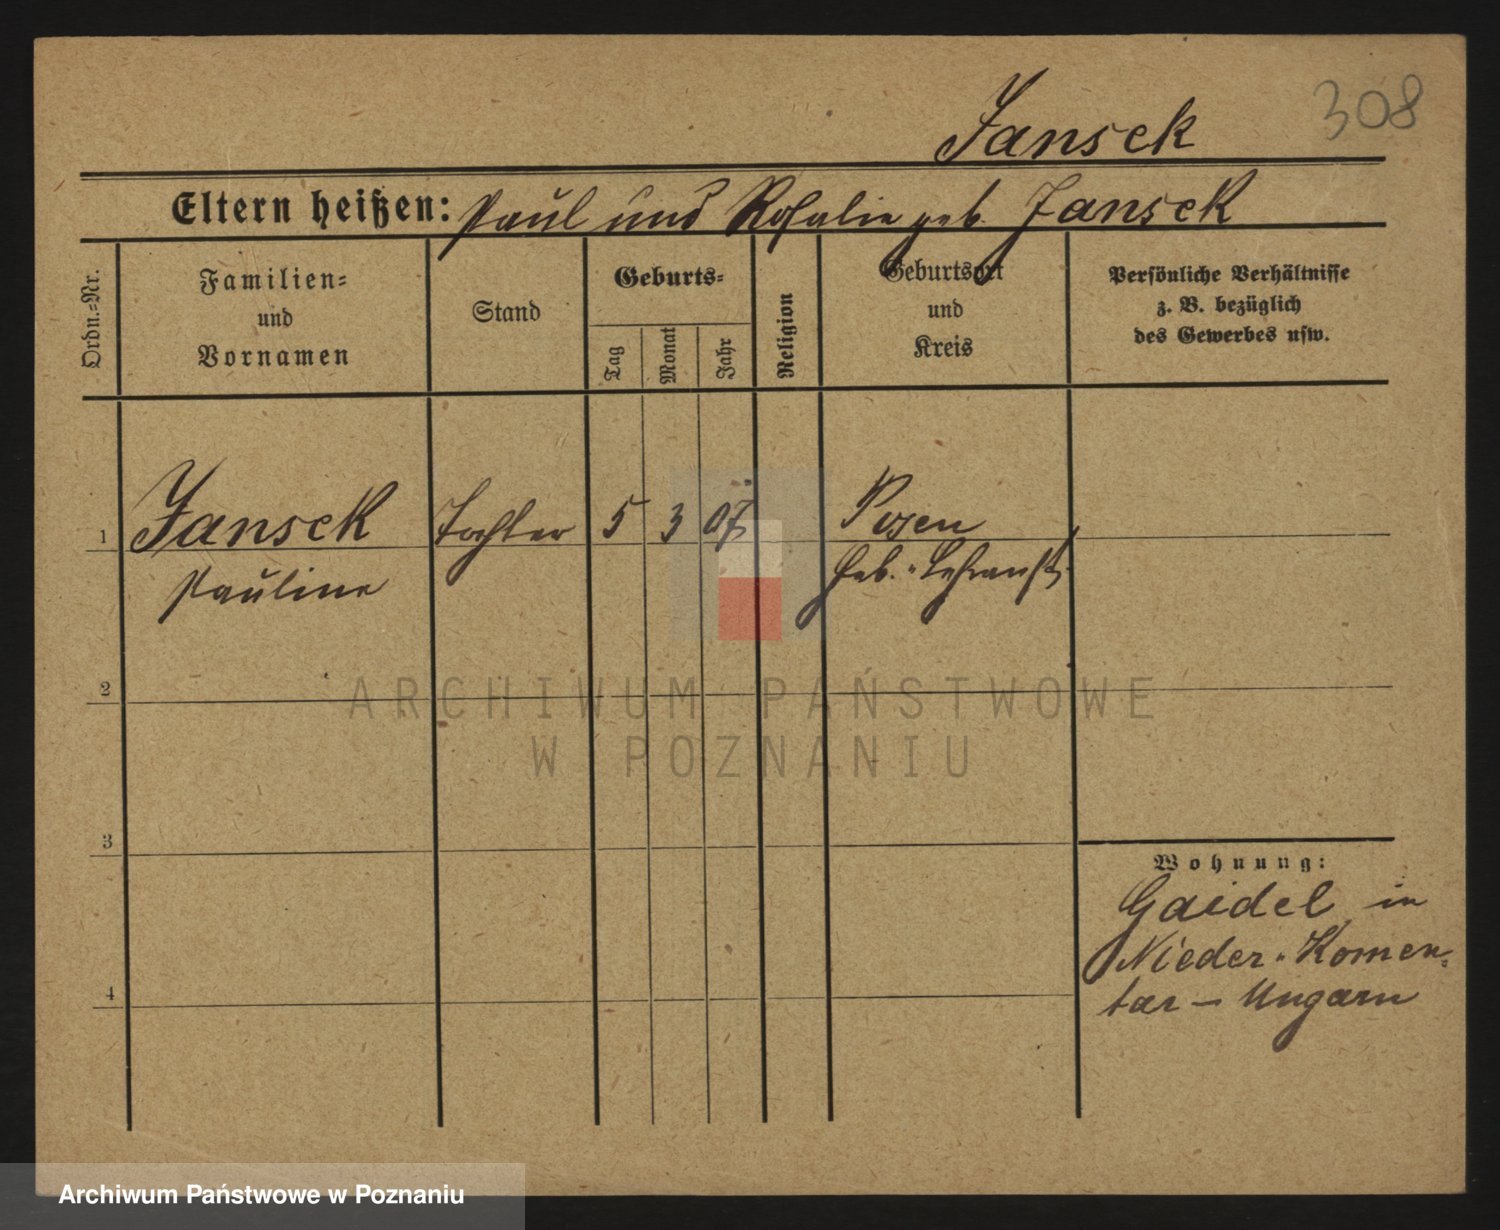 308
Jansek
Eltern heißen: Paul und Rosalie geb. Jansek
Ordn.=Nr.
Familien=
und
Vornamen
Stand
Geburts=
Tag
Monat
Jahr
Religion
Geburtsort
und
Kreis
Persönliche Verhältnisse
z. B. bezüglich
des Gewerbes usw.
1 Jansek Tochter 5 3 07 Posen
Pauline Heb.-Lehranst.
2
3
Wohnung:
Gaidel in
Nieder-Komen-
tar – Ungarn
4
ARCHIWUM PAŃSTWOWE
W POZNANIU
Archiwum Państwowe w Poznaniu